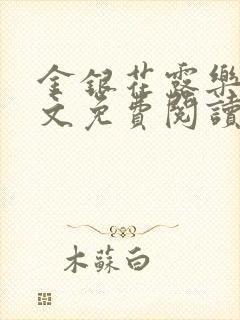 金銀花露樂
文免費閱讀
木蘇白